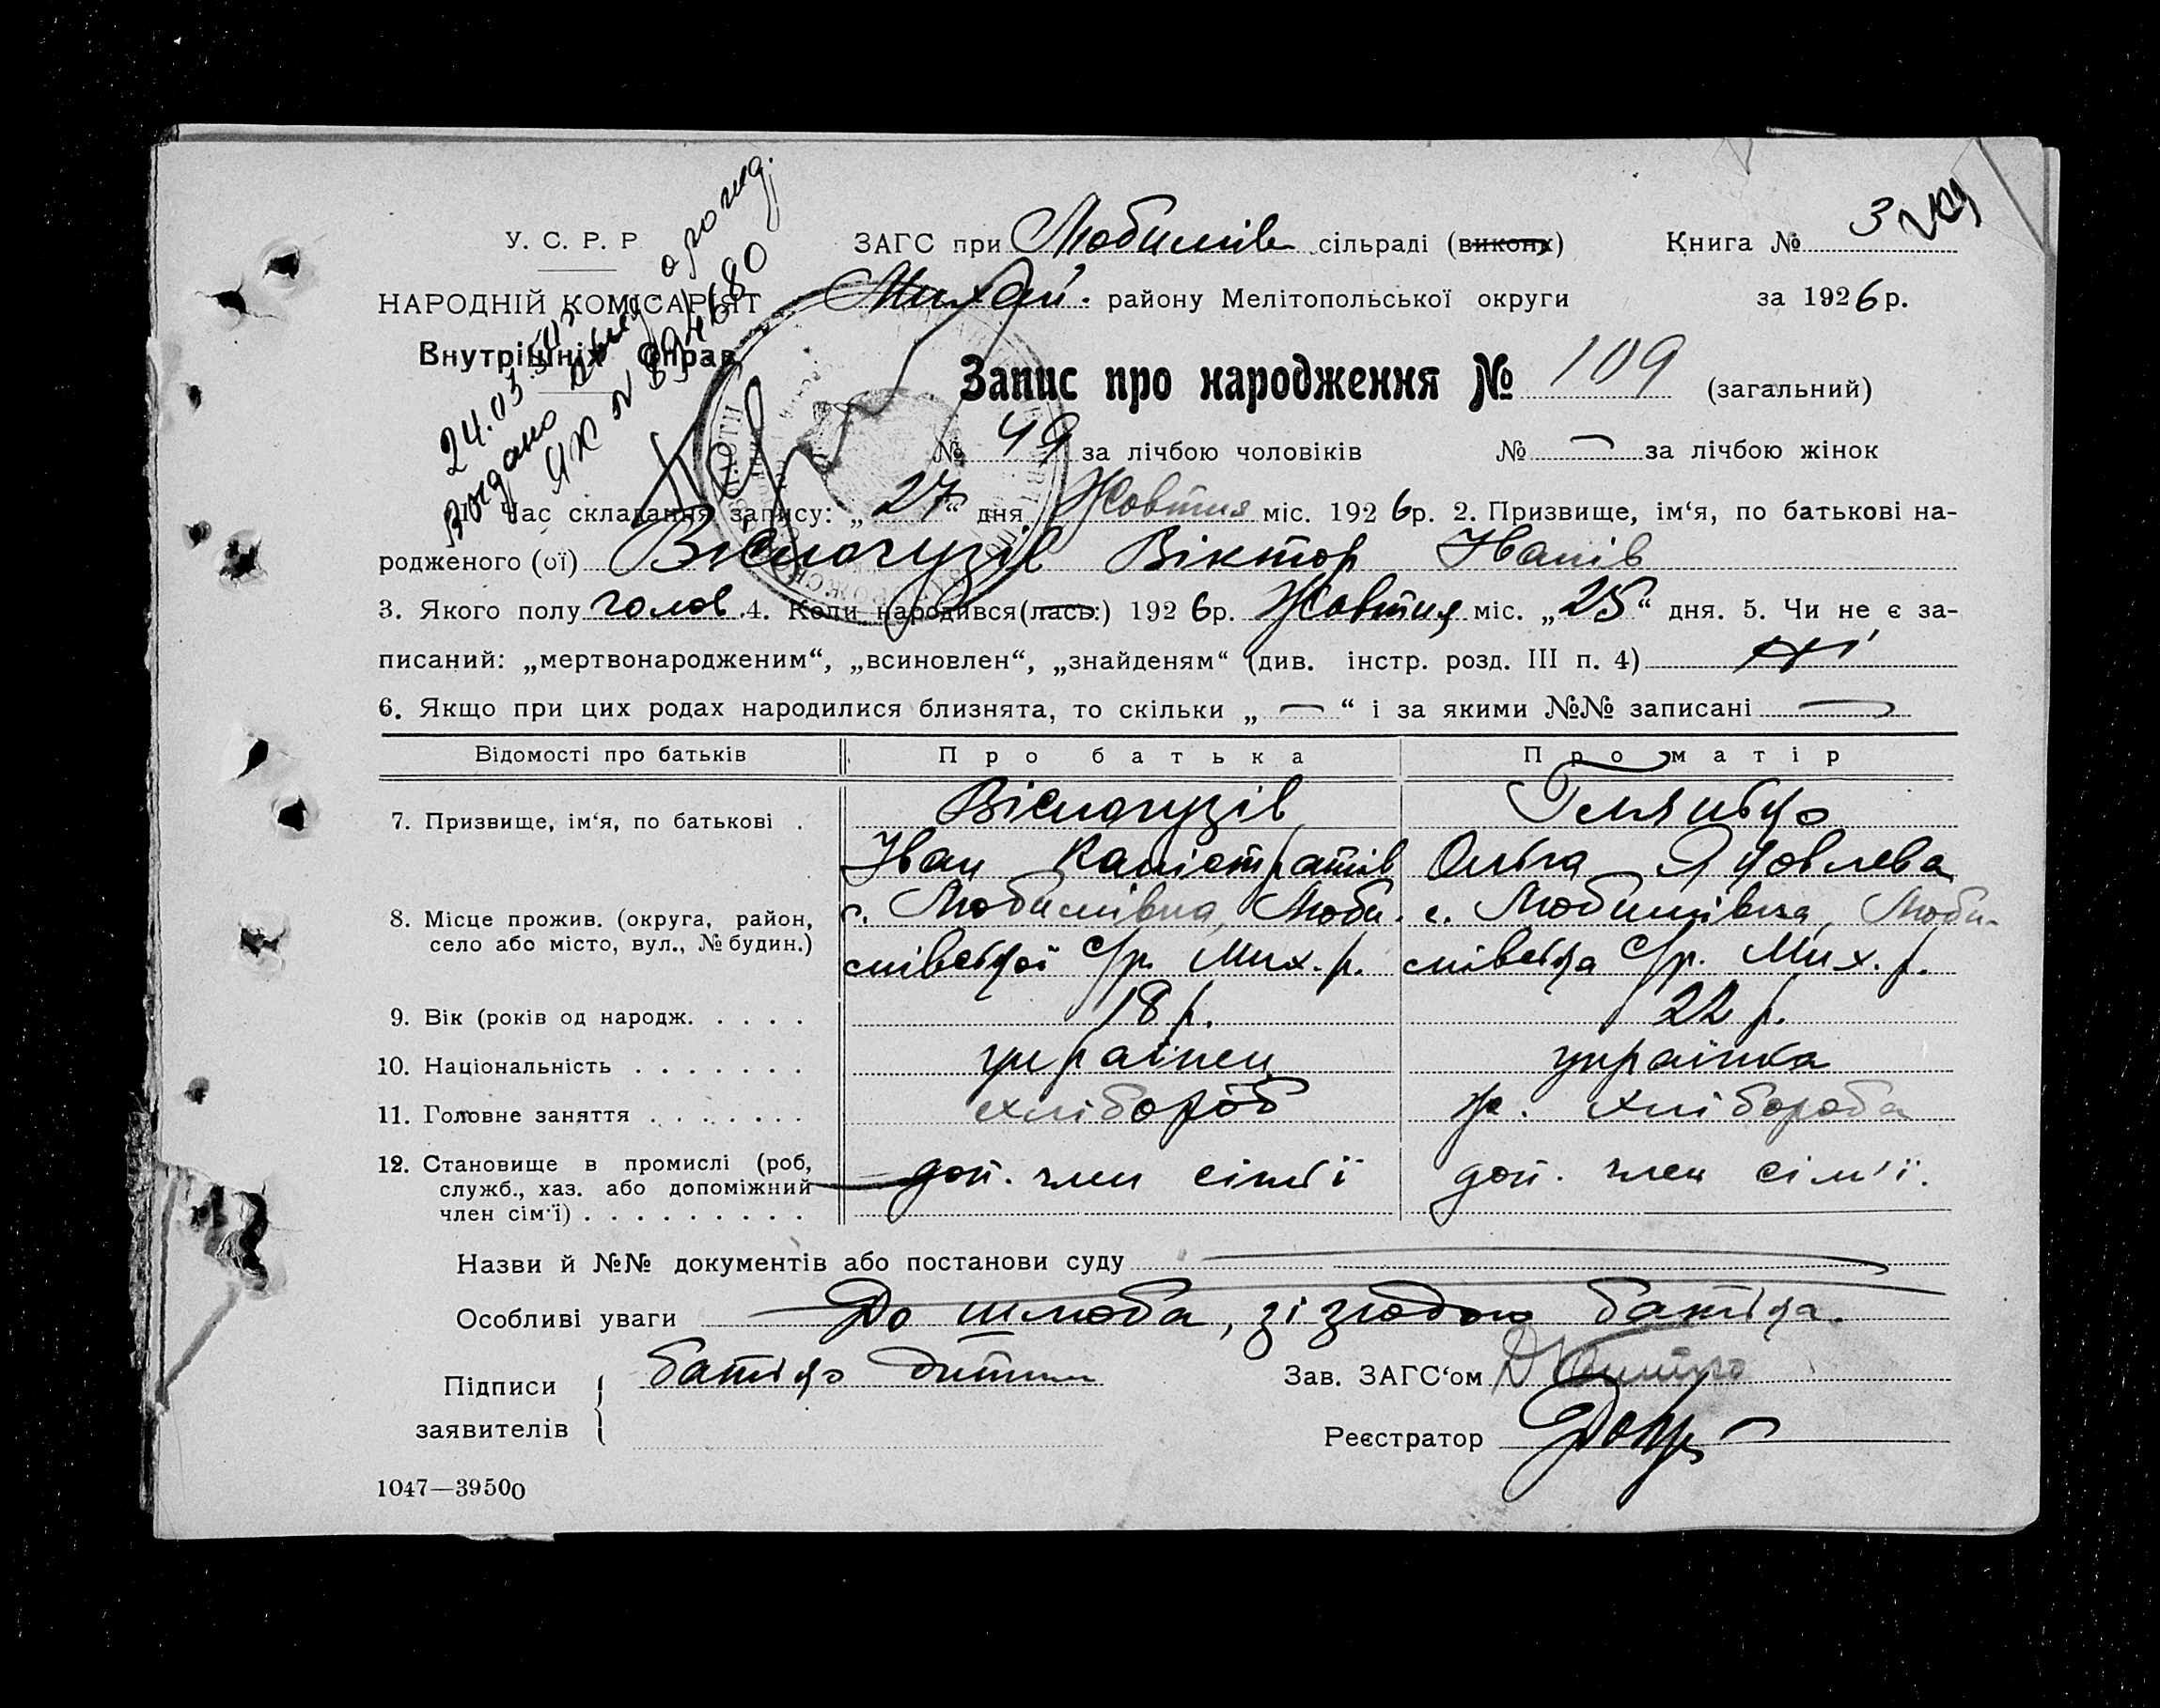 У. С. Р. Р.
НАРОДНІЙ КОМІСАРІЯТ
Внутрішніх Справ
24.03.
Видано
ЯЖ № 894680
ЗАГС при Любимів сільраді (виконк)
Книга № 3
Михай. району Мелітопольської округи
за 1926 р.
Запис про народження № 109 (загальний)
№ 49 за лічбою чоловіків № — за лічбою жінок
1. Час складання запису: „27“ дня Жовтня міс. 1926 р. 2. Призвище, ім‘я, по батькові на-
родженого (ої) Віслогузів Віктор Іванів
3. Якого полу чолов. 4. Коли народився(лась:) 1926 р. Жовтня міс. „25“ дня. 5. Чи не є за-
писаний: „мертвонародженим“, „всиновлен“, „знайденям“ (див. інстр. розд. III п. 4) ні
6. Якщо при цих родах народилися близнята, то скільки „—“ і за якими №№ записані —
Відомості про батьків Про батька Про матір
7. Призвище, ім‘я, по батькові . Віслогузів
Іван Калістратів Ольга Яковлева
8. Місце прожив. (округа, район, с. Любимівка, Люби- с. Любимівка, Люби-
село або місто, вул., № будин.) мівської С/р. Мих. р. мівська С/р. Мих. р.
9. Вік (років од народж. . . . . 18 р. 22 р.
10. Національність . . . . . . . українец українка
11. Головне заняття . . . . . . . хлібороб хлібороба
12. Становище в промислі (роб, доп. член сім'ї доп. член сім'ї.
служб., хаз. або допоміжний
член сім‘ї) . . . . . . . . .
Назви й №№ документів або постанови суду
Особливі уваги До шлюба, зі згодою батька.
Підписи заявителів батько дитини
Зав. ЗАГС‘ом
Реєстратор
1047—39500